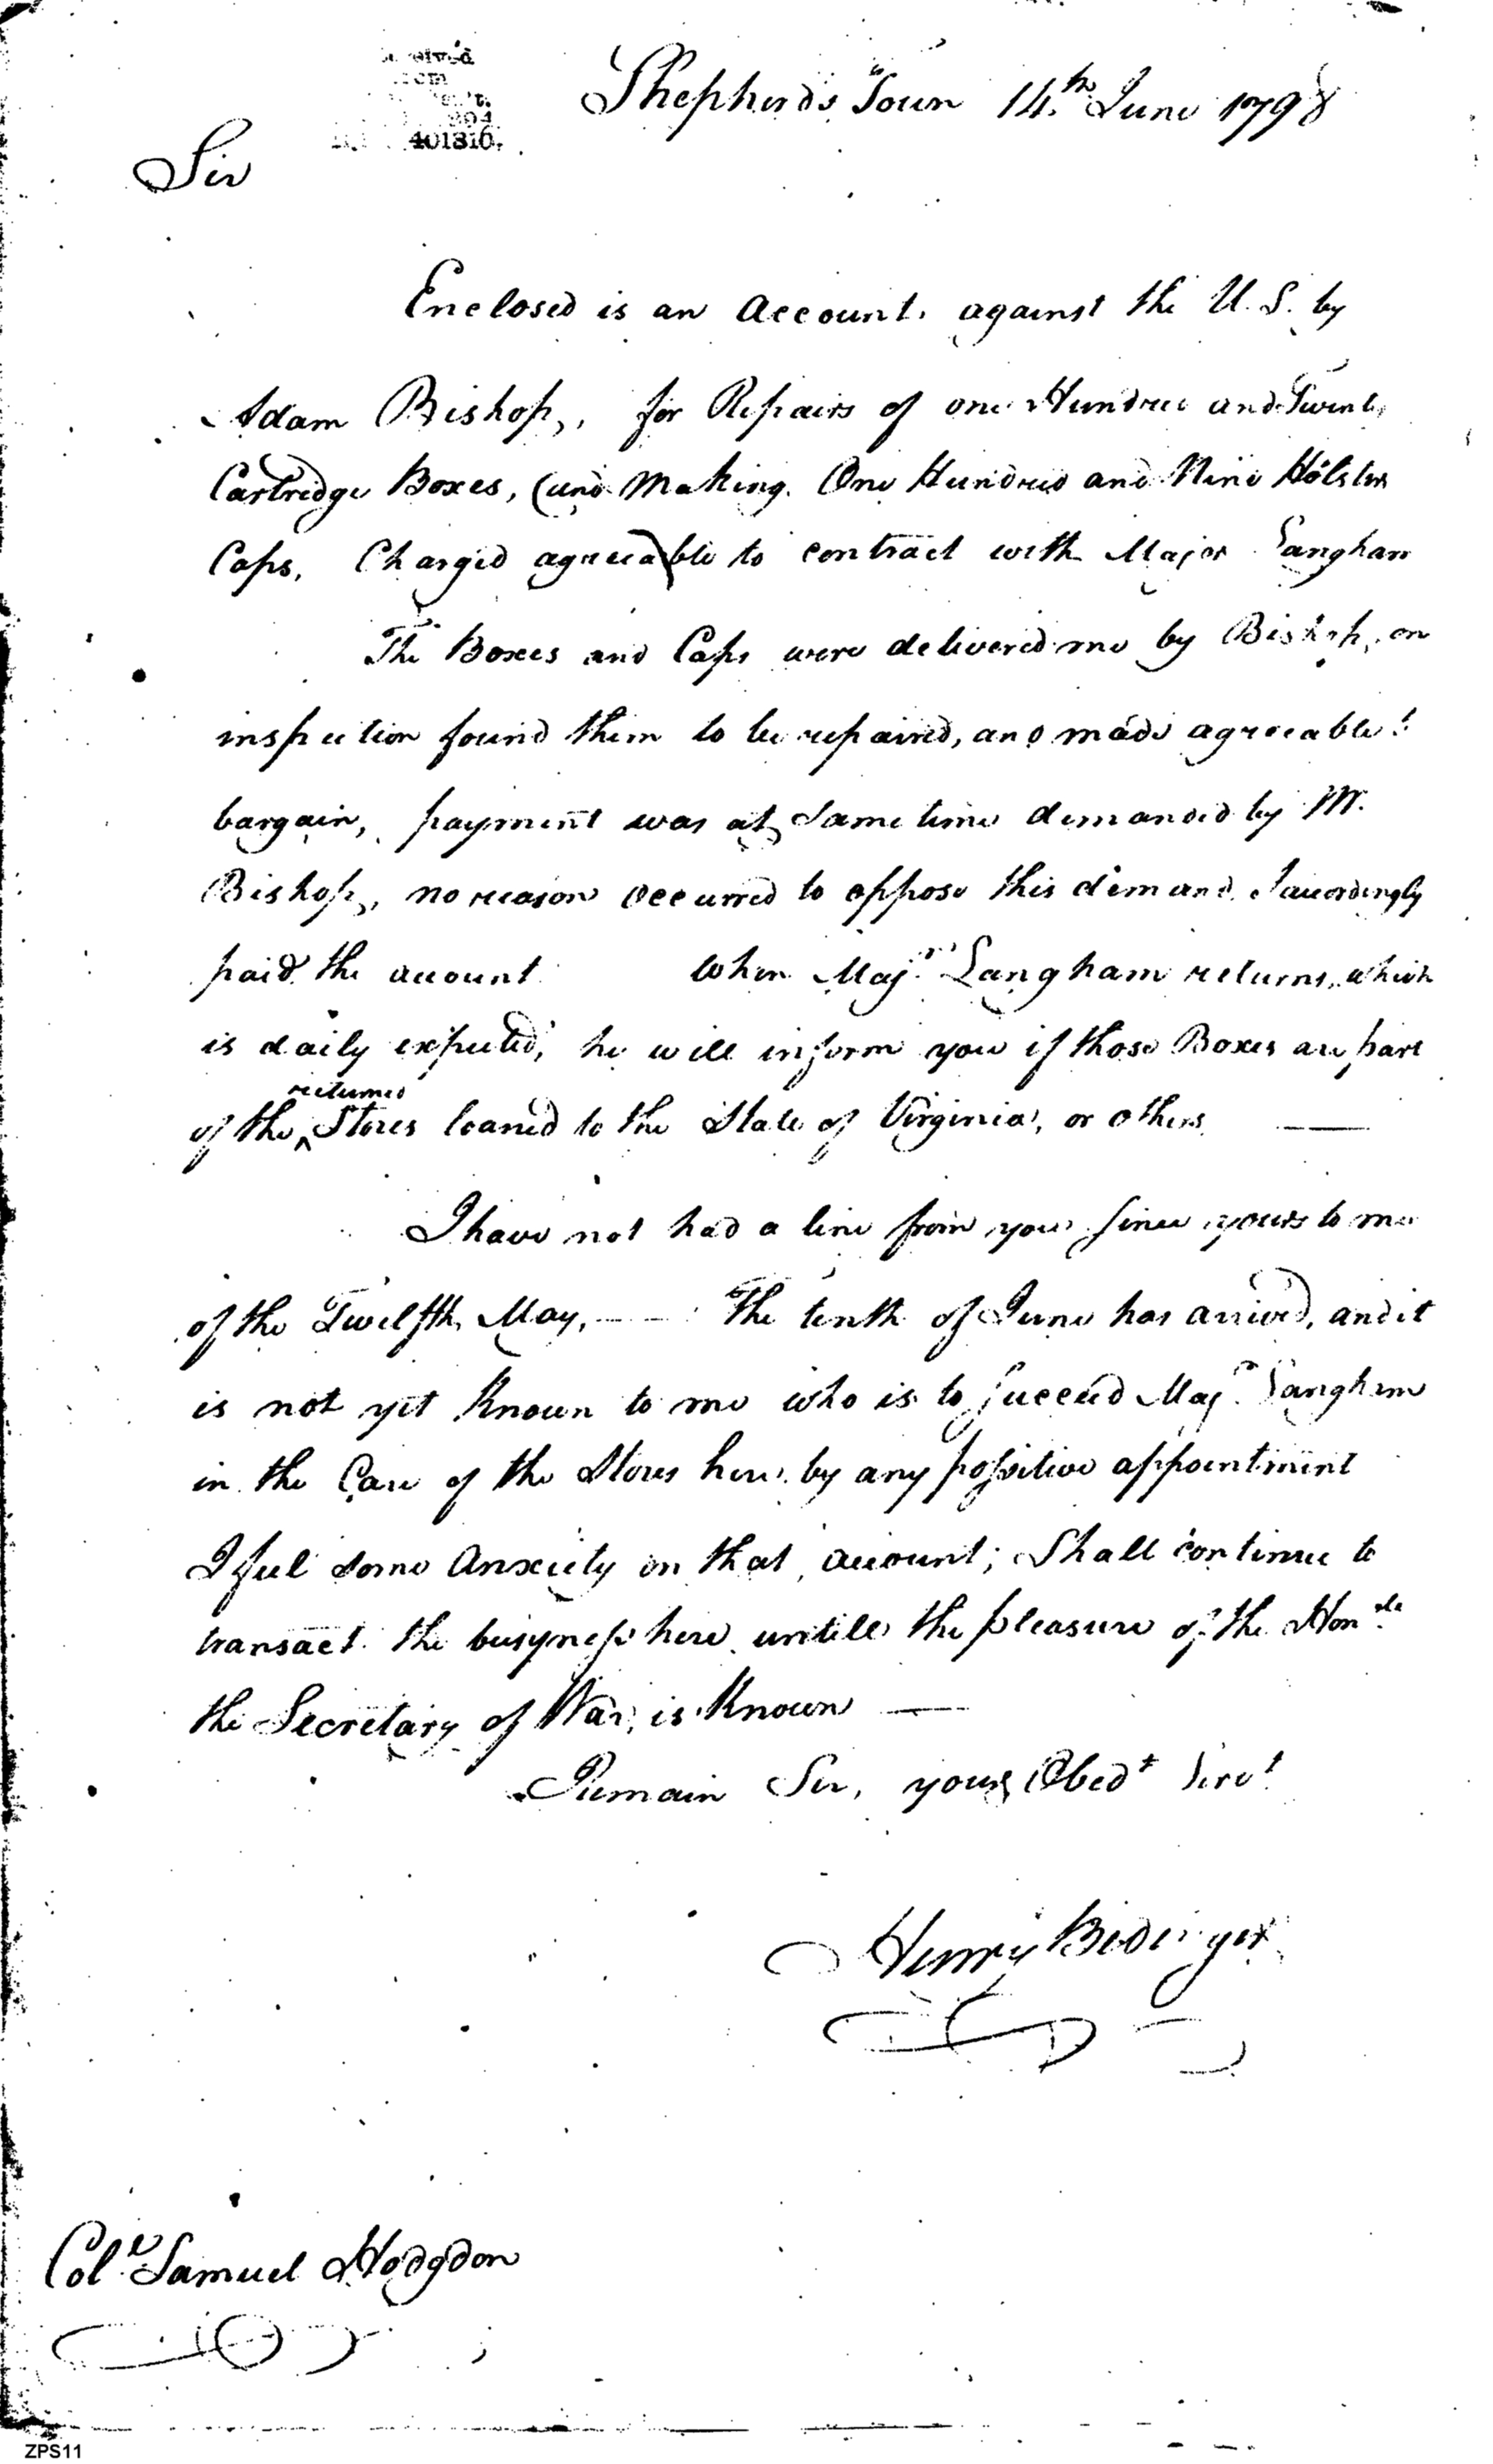 Shepherds Town 14th June 1798
401816.
Sir
Enclosed is an Account against the U. S. by
Adam Bishop, for Repairs of one Hundred and Twenty
Cartridge Boxes, (and Making One Hundred and Nine Holster
Caps, Charged agreeable to contract with Major Langham
The Boxes and Caps were delivered me by Bishop, on
inspection found them to be repaired, and made agreeable t
bargain, payment was at same time demanded by Mr.
Bishop, no reason occurred to oppose this demand. I accordingly
paid the account When Majr. Langham returns, which
is daily expected, he will inform you if those Boxes are part
returned
of the ^ Stores loaned to the State of Virginia, or others —
I have not had a line from you since yours to me
of the Twelfth May, — The tenth of June has arrived, and it
is not yet Known to me who is to succeed Majr. Langham
in the Care of the Stores here by any possitive appointment
I feel some Anxiety on that account; Shall continue to
transact the busyness here untill the pleasure of the Honble
the Secretary of War, is Known —
Remain Sir, yours Obedt Servt
Henry Bedinger
Coll. Samuel Hodgdon
ZPS11